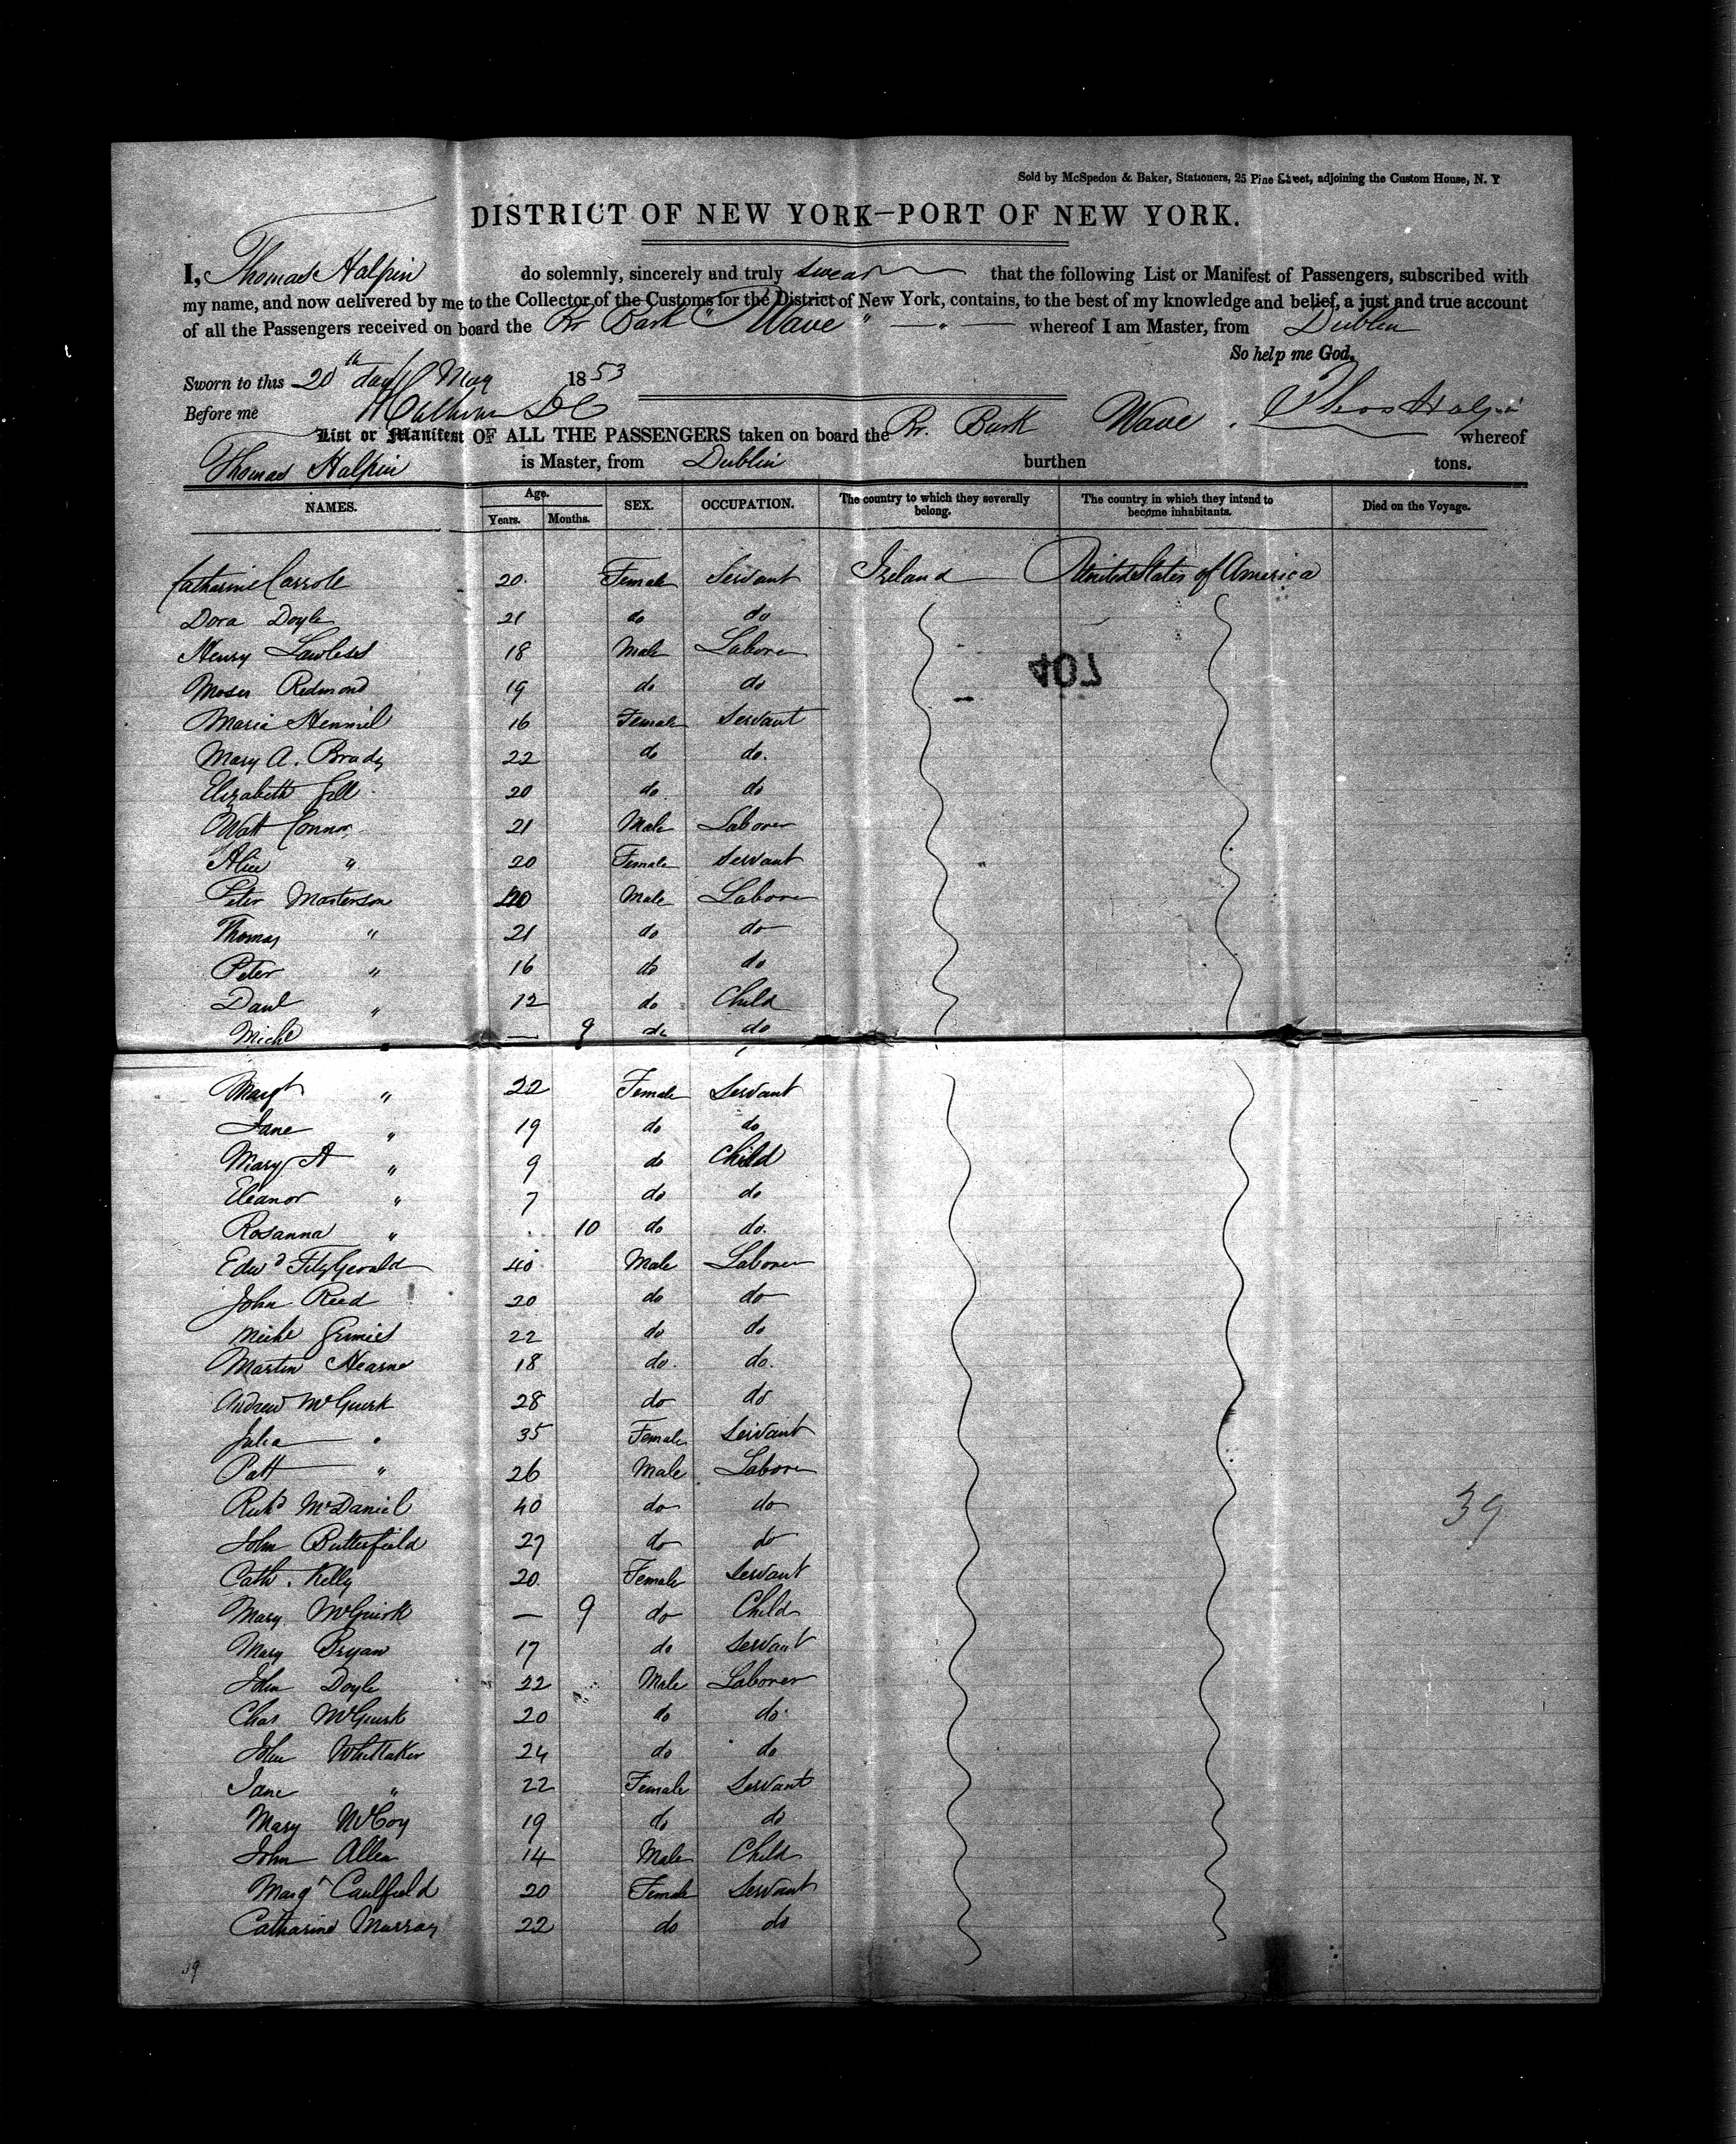 Sold by McSpedon & Baker, Stationers, 25 Pine Street, adjoining the Custom House, N. Y
DISTRICT OF NEW YORK—PORT OF NEW YORK.
I, Thomas Halpin do solemnly, sincerely and truly swear that the following List or Manifest of Passengers, subscribed with
my name, and now delivered by me to the Collector of the Customs for the District of New York, contains, to the best of my knowledge and belief, a just and true account
of all the Passengers received on board the Br Bark "Wave" whereof I am Master, from Dublin
So help me God.
Sworn to this 20th day of May 1853
Before me Thos Halpin
List or Manifest OF ALL THE PASSENGERS taken on board the Br. Bark Wave. whereof
Thomas Halpin is Master, from Dublin burthen tons.
NAMES. Age. Years. Months. SEX. OCCUPATION. The country to which they severally belong. The country in which they intend to become inhabitants. Died on the Voyage.
Catharine Carrole 20. Female Servant Ireland United States of America
Dora Doyle 21 do do
Henry Lawless 18 Male Laborer
407
Moses Redmond 19 do do
Maria 16 Female Servant
Mary A. Brady 22 do do.
Elizabeth Gill 20 do do
Watt Connor 21 Male Laborer
Alice " 20 Female Servant
Peter Masterson Male Laborer
Thomas " 21 do do
Peter " 16 do do
Danl " 12 do Child
Michl " — 9 do do
Margt " 22 Female Servant
Jane " 19 do do
Mary A " 9 do Child
Eleanor " 7 do do
Rosanna " 10 do do.
Edwd FitzGerald 40 Male Laborer
John Reed 20 do do
Michl Grimes 22 do do
Martin Hearne 18 do. do.
Andrew McGuirk 28 do do
Julia " 35 Female Servant
Patt " 26 Male Laborer
Richd McDaniel 40 do do
39
John Butterfield 27 do do
Cath. Kelly 20. Female Servant
Mary McGuirk — 9 do Child
Mary Bryan 17 do Servant
John Doyle 22 Male Laborer
Chas McGuirk 20 do do
John Whittaker 24 do do
Jane " 22 Female Servant
Mary McCoy 19 do do
John Allen 14 Male Child
Margt Caulfield 20 Female Servant
Catharine Murray 22 do do
39